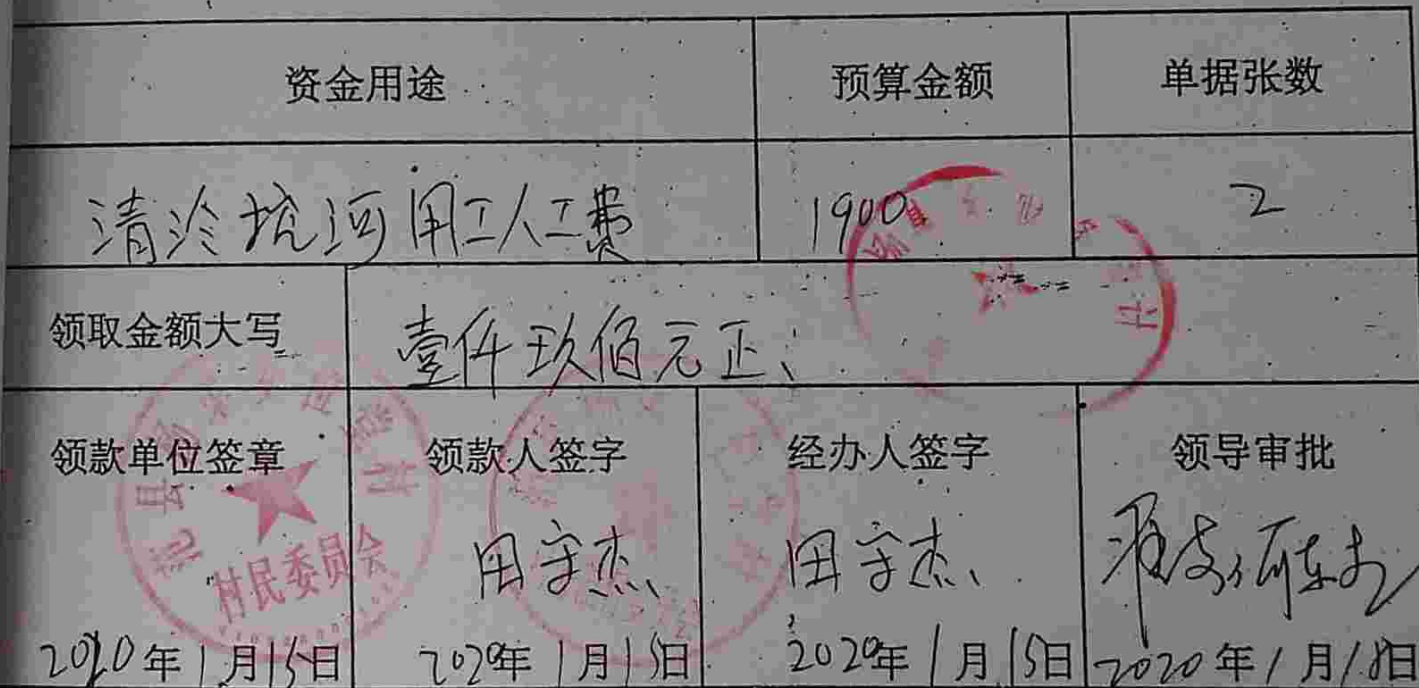 资金用途 预算金额 单据张数
清冷坑河用工人工费 1900 2
领取金额大写 壹仟玖佰元正、
领款单位签章 领款人签字 经办人签字 领导审批
村民委员会 田守杰、 田守杰、
2020年1月15日 2020年1月15日 2020年1月15日 2020年1月18日